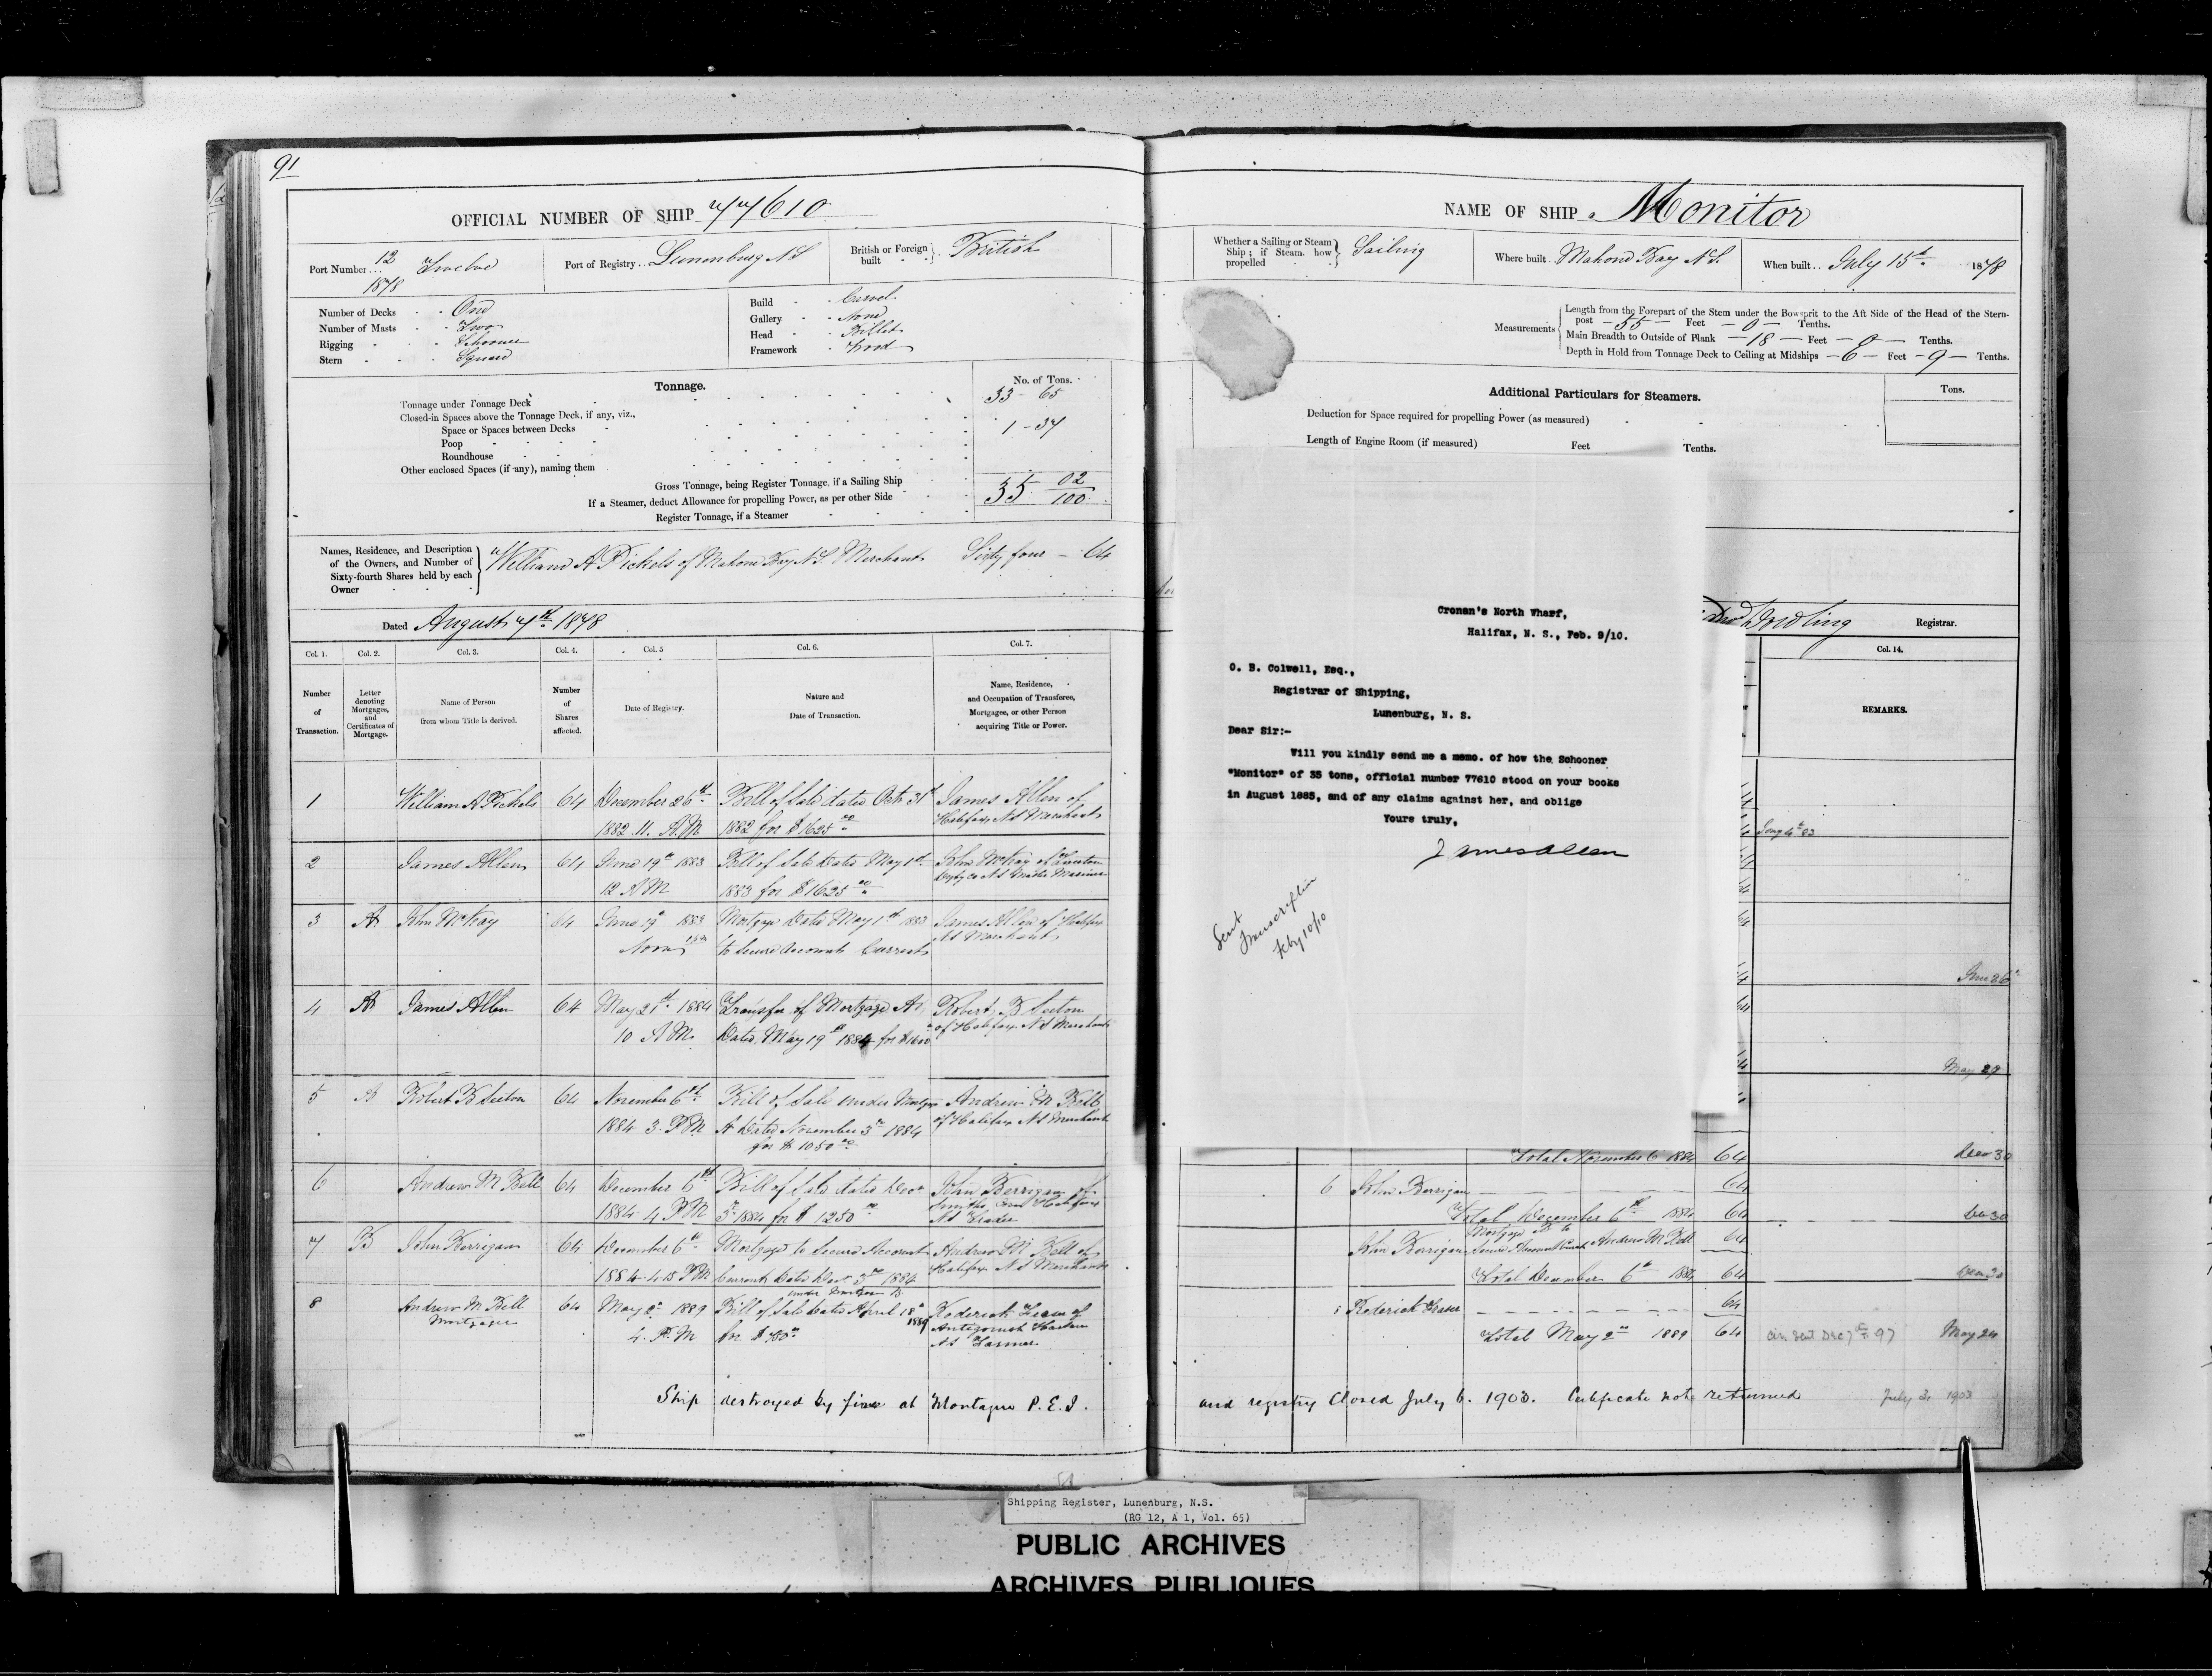 91
OFFICIAL NUMBER OF SHIP 77610
Port Number... 12 Twelve
1878
Port of Registry.. Lunenburg NS
British or Foreign built British
Number of Decks One
Number of Masts Two
Rigging Schooner
Stern Square
Build Carvel
Gallery None
Head Billet
Framework Wood
Tonnage.
No. of Tons.
Tonnage under Tonnage Deck 33 - 65
Closed-in Spaces above the Tonnage Deck, if any, viz.,
Space or Spaces between Decks 1 - 37
Poop
Roundhouse
Other enclosed Spaces (if any), naming them
Gross Tonnage, being Register Tonnage, if a Sailing Ship 35 02/100
If a Steamer, deduct Allowance for propelling Power, as per other Side
Register Tonnage, if a Steamer
Names, Residence, and Description
of the Owners, and Number of
Sixty-fourth Shares held by each
Owner
William A Pickels of Mahone Bay N.S. Merchant Sixty four - 64
Dated August 7th 1878
Col. 1. Col. 2. Col. 3. Col. 4. Col. 5 Col. 6. Col. 7.
Number of Transaction.
Letter denoting Mortgages, and Certificates of Mortgage.
Name of Person from whom Title is derived.
Number of Shares affected.
Date of Registry.
Nature and Date of Transaction.
Name, Residence, and Occupation of Transferee, Mortgagee, or other Person acquiring Title or Power.
1 William A Pickels 64 December 26th Bill of Sale dated Octr 31st James Allen of
1882 11. A.M 1882 for $1625 00 Halifax NS Merchant
2 James Allen 64 June 19th 1883 Bill of Sale Dated May 1st John McKay of
12 AM 1883 for $1625 00 NS Master Mariner
3 A John McKay 64 June 19th 1883 Mortgage Dated May 1st 1883 James Allen of Halifax
Noon to Secure Accounts Current NS Merchant
4 A James Allen 64 May 21st 1884 Transfer of Mortgage A Robert B Seeton
10 AM Dated May 19th 1884 for $1600 of Halifax NS Merchant
5 A Robert B Seeton 64 November 6th Bill of Sale under Mortgage Andrew M Bell
1884 3. P.M A Dated November 3rd 1884 of Halifax NS Merchant
for $1050 00
6 Andrew M Bell 64 December 6th Bill of Sale dated Decr John Berrigan of
1884 4 P.M 3rd 1884 for $1250 00 Halifax
NS Trader
7 B John Berrigan 64 December 6th Mortgage to Secure Account Andrew M Bell of
1884 4.15 P.M Current Dated Decr 3rd 1884 Halifax NS Merchant
under Mortgage B
8 Andrew M Bell 64 May 2nd 1889 Bill of Sale Dated April 18th 1889 Roderick Fraser of
Mortgagee 4. P.M for $700 Antigonish Harbour
NS Farmer
Ship destroyed by fire at Montague P.E.I.
NAME OF SHIP Monitor
Whether a Sailing or Steam
Ship; if Steam, how
propelled
Sailing
Where built.. Mahone Bay N.S.
When built.. July 15th 1878
Measurements
Length from the Forepart of the Stem under the Bowsprit to the Aft Side of the Head of the Stern-
post — 55 — Feet — 0 — Tenths.
Main Breadth to Outside of Plank — 18 — Feet — 0 — Tenths.
Depth in Hold from Tonnage Deck to Ceiling at Midships — 6 — Feet — 9 — Tenths.
Additional Particulars for Steamers.
Tons.
Deduction for Space required for propelling Power (as measured)
Length of Engine Room (if measured) Feet Tenths.
Cronan's North Wharf,
Halifax, N. S., Feb. 9/10.
O. B. Colwell, Esq.,
Registrar of Shipping,
Lunenburg, N. S.
Dear Sir:-
Will you kindly send me a memo. of how the Schooner
"Monitor" of 35 tons, official number 77610 stood on your books
in August 1885, and of any claims against her, and oblige
Yours truly,
James Allen
Sent
Transcription
Feby 10/10
Dowling Registrar.
Col. 14.
REMARKS.
June 26th
May 29
Total November 6 1884 64 Decr 30
6 John Berrigan 64
Total December 6th 1884 64 Dec 30
John Berrigan Mortgage B to Secure Account Current Andrew M Bell 64
Total December 6th 1884 64 Dec 30
Roderick Fraser 64
Total May 2nd 1889 64 Cir sent Dec 7th 97 May 24
and registry Closed July 6. 1903. Certificate not returned July 3, 1903
Shipping Register, Lunenburg, N.S.
(RG 12, A 1, Vol. 65)
PUBLIC ARCHIVES
ARCHIVES PUBLIQUES